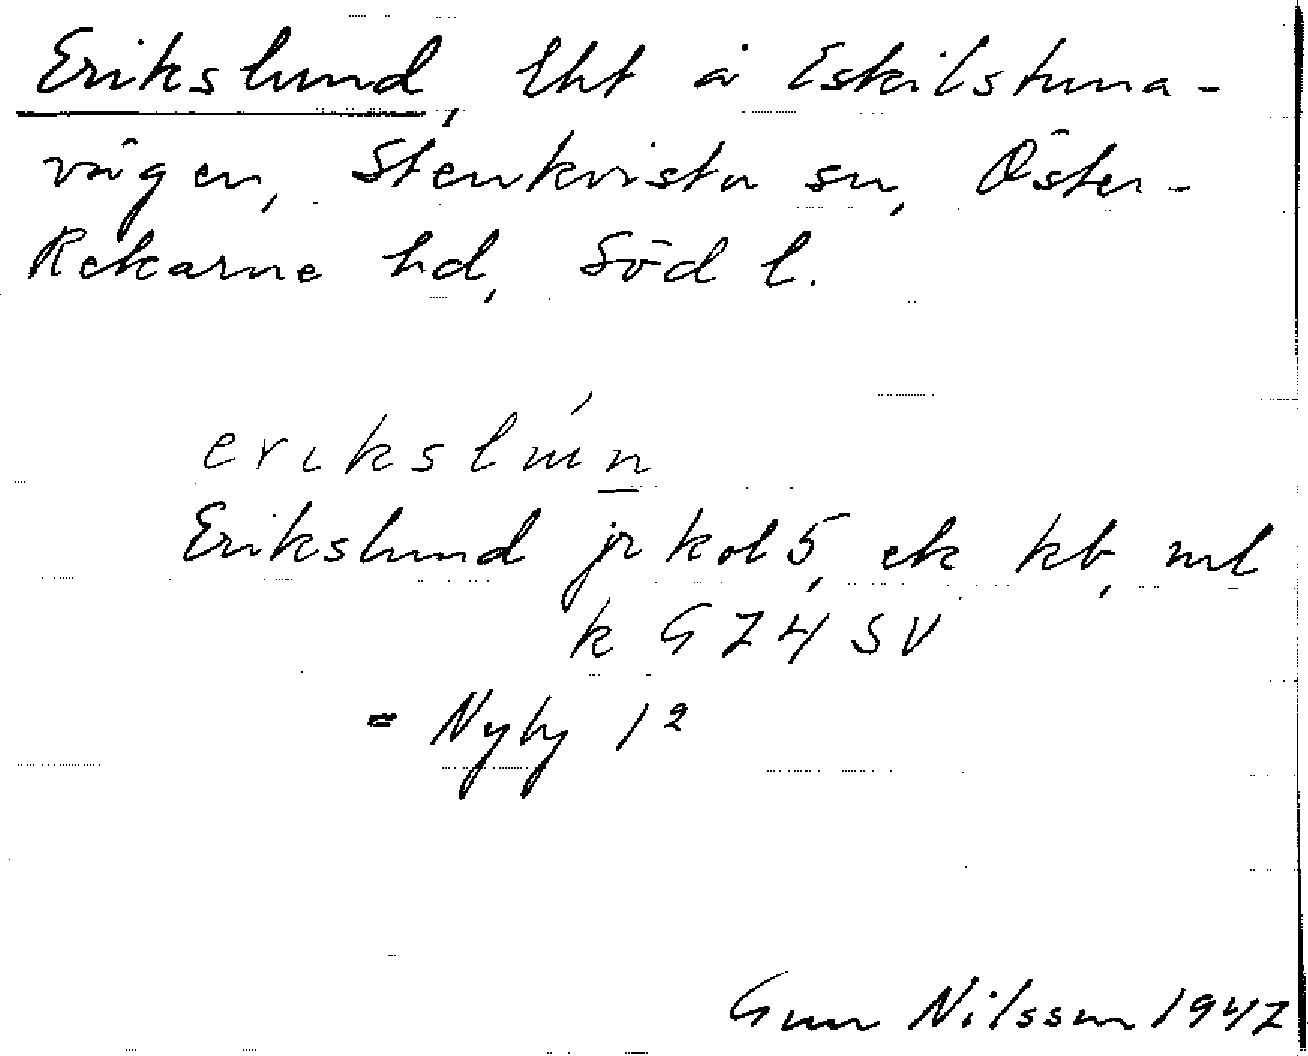 Erikslund, lht å Eskilstuna-
vägen, Stenkvista sn, Öster-
Rekarne hd, Söd l.
erikslún
Erikslund jr kol 5, ek kb, nrl
k G 7 4 SV
= Nyby 1²
Gun Nilsson 1947